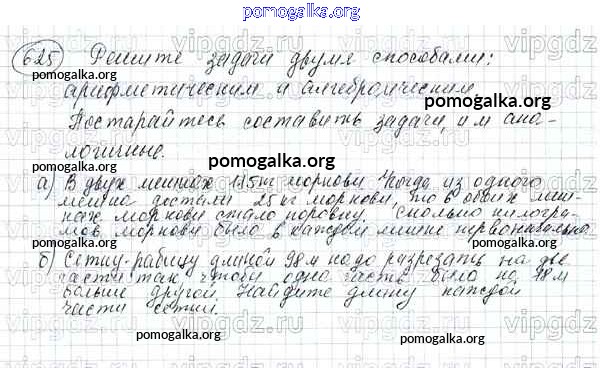 pomogalka.org
625 Решите задачи двумя способами:
pomogalka.org
арифметическим и алгебраическим.
pomogalka.org
Постарайтесь составить задачи, им ана-
логичные.
pomogalka.org
а) В двух мешках 115 кг моркови. Когда из одного
мешка достали 25 кг моркови, то в обоих меш-
ках моркови стало поровну. Сколько килогра-
мов моркови было в каждом мешке первоначально
б) Сетку-рабицу длиной 98 м надо разрезать на две
части так, чтобы одна часть была на 18 м
больше другой. Найдите длину каждой
части сетки.
pomogalka.org
pomogalka.org
pomogalka.org